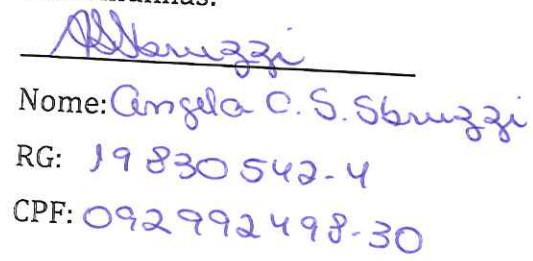 Nome: Angela C. S. Sbruzzi
RG: 19830542-4
CPF: 092992498-30